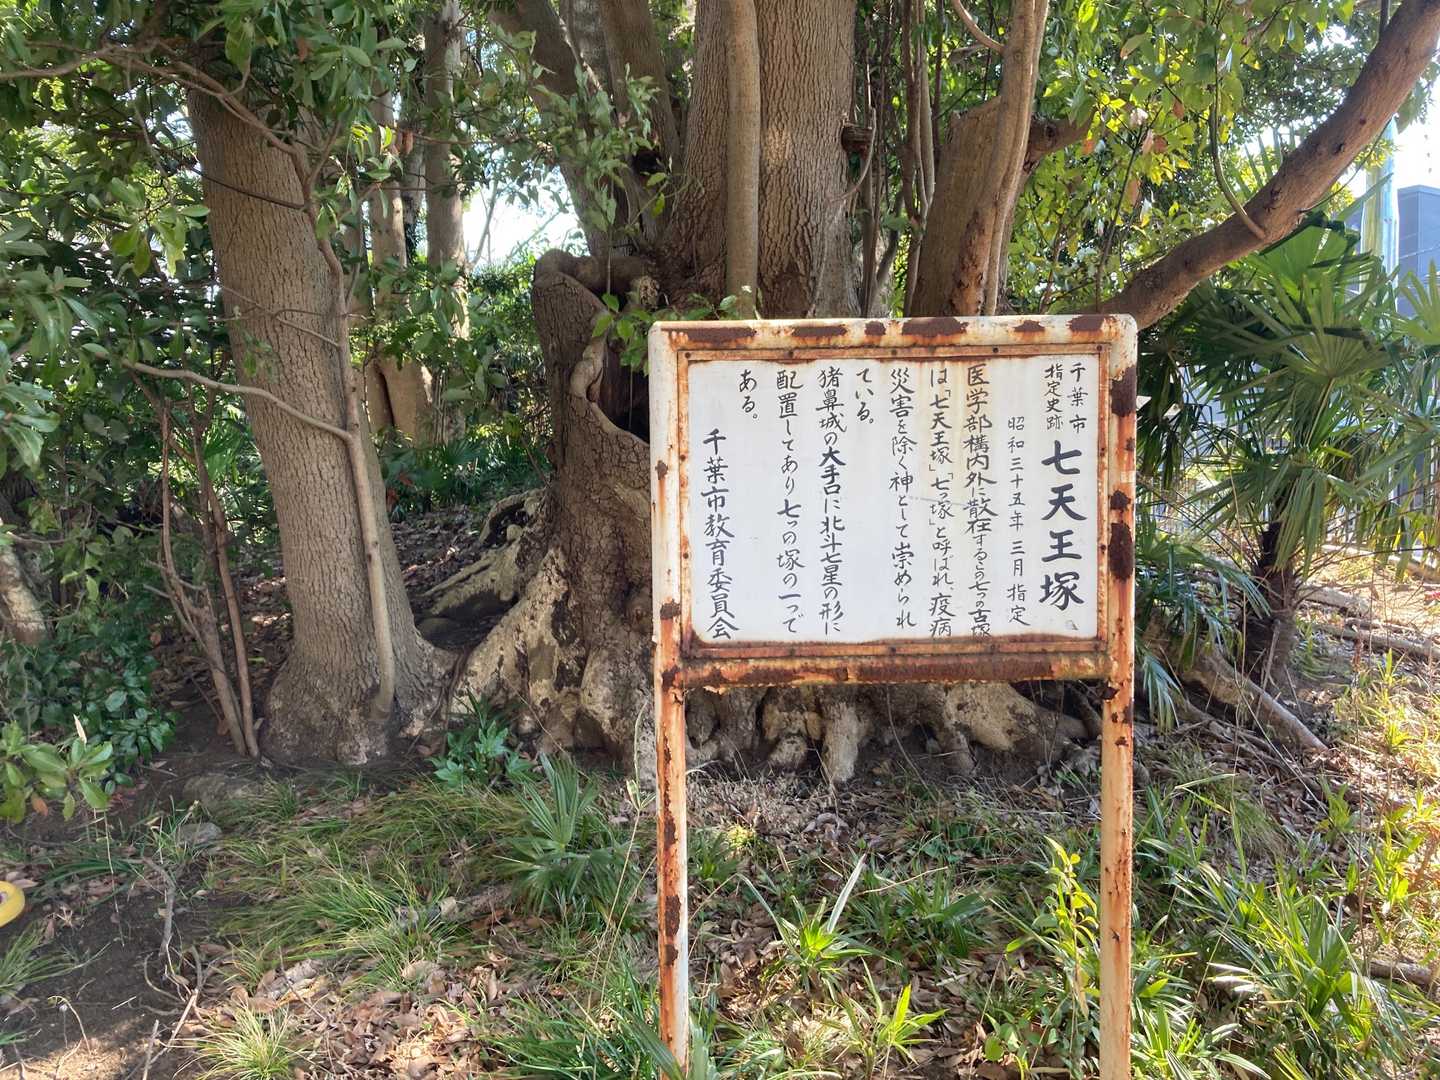 千葉市
指定史跡
七天王塚
昭和三十五年三月指定
医学部構内外に散在するこの七つの古塚
は「七天王塚」「七つ塚」と呼ばれ、疫病
災害を除く神として崇められ
ている。
猪鼻城の大手口に北斗七星の形に
配置してあり七つの塚の一つで
ある。
千葉市教育委員会